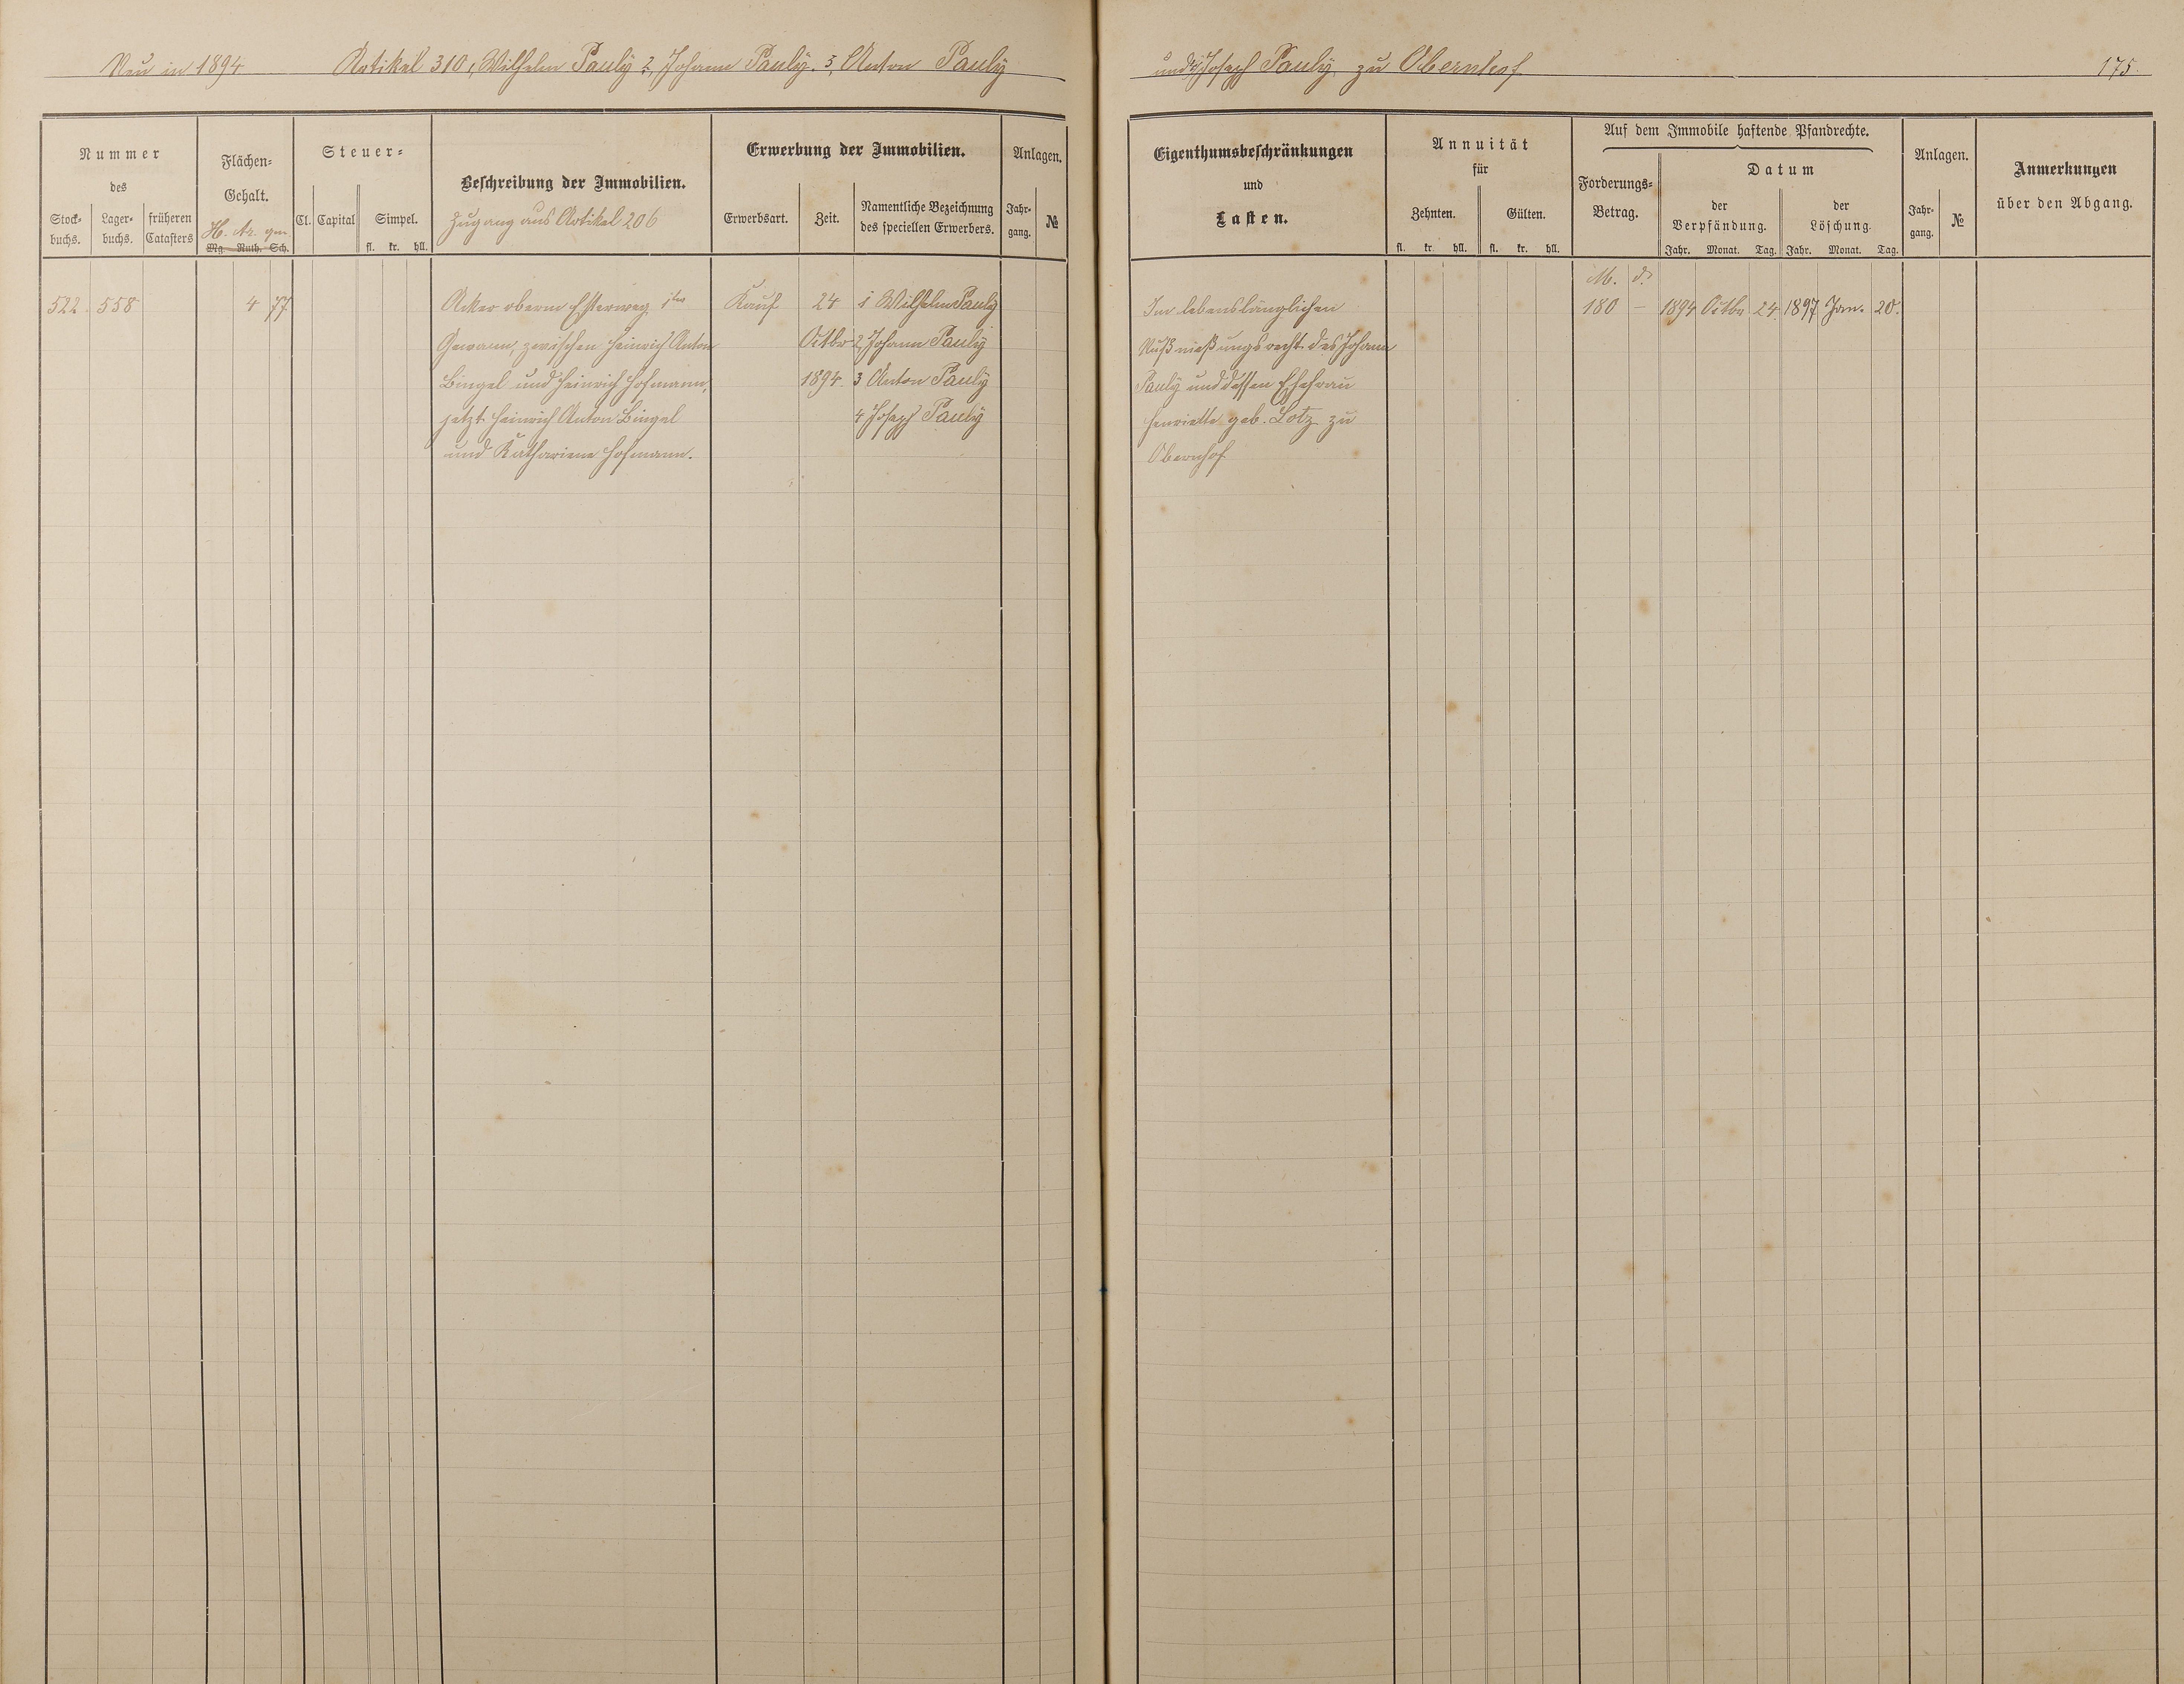 Neu in 1894 Artikel 310 1, Wilhelm Pauly 2, Johann Pauly. 3, Anton Pauly
und 4, Joseph Pauly zu Obernhof 175.
Nummer
des
Stock-
buchs.
Lager-
buchs.
früheren
Catasters
Flächen-
Gehalt.
H. Ar. qm
Mg. Ruth. Sch.
Steuer-
Cl. Capital Simpel.
fl. kr. hll.
Beschreibung der Immobilien.
Zugang aus Artikel 206
Erwerbung der Immobilien.
Erwerbsart. Zeit.
Namentliche Bezeichnung
des speciellen Erwerbers.
Anlagen.
Jahr-
gang.
№
Eigenthumsbeschränkungen
und
Lasten.
Annuität
für
Zehnten. Gülten.
fl. kr. hll. fl. kr. hll.
Auf dem Immobile haftende Pfandrechte.
Forderungs-
Betrag.
Datum
der
Verpfändung.
Jahr. Monat. Tag.
der
Löschung.
Jahr. Monat. Tag.
Anlagen.
Jahr-
gang.
№
Anmerkungen
über den Abgang.
522. 558 4 77
Acker oberm 1ter
Gewann, zwischen Heinrich Anton
Bingel und Heinrich Hofmann,
jetzt Heinrich Anton Bingel
und Kathariene Hofmann.
Kauf
24
Octbr
1894.
1 Wilhelm Pauly
2 Johann Pauly
3 Anton Pauly
4 Joseph Pauly
Im lebenslänglichen
Nutznießungsrecht des Johann
Pauly und dessen Ehefrau
Henriette geb. Lotz zu
Obernhof
M. d.
180 – 1894 Octbr 24. 1897 Jan. 20.